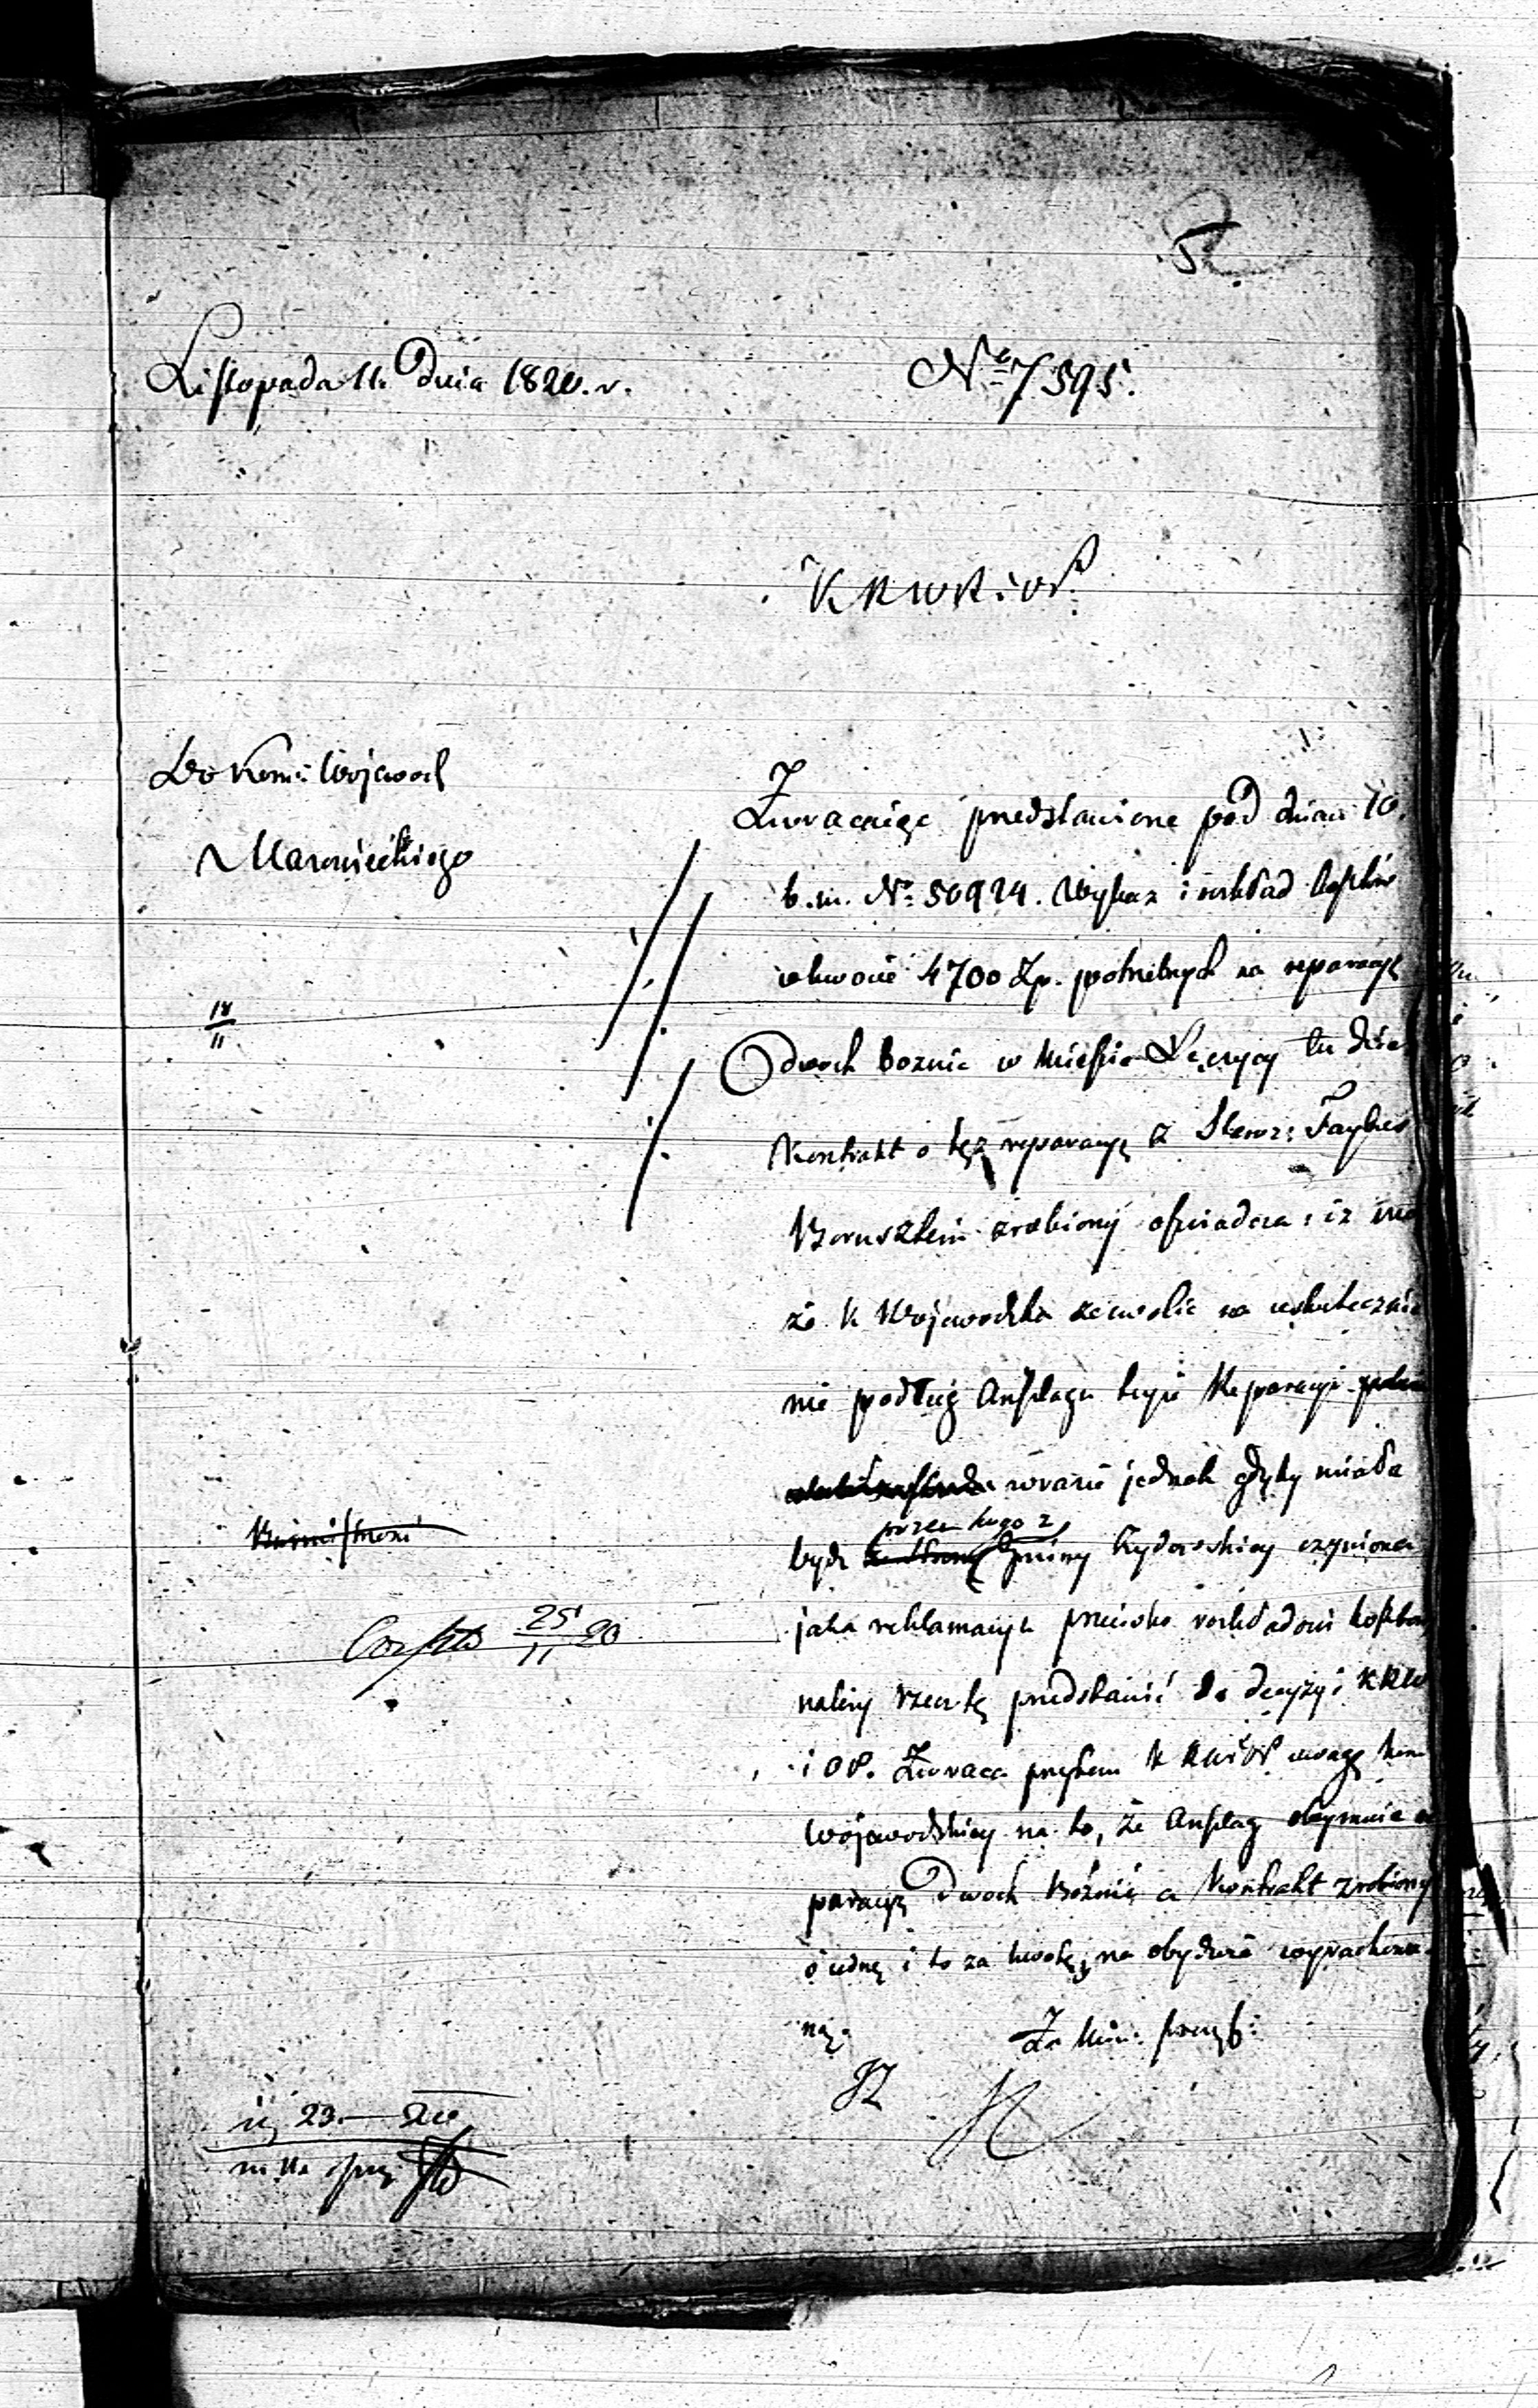 5
Listopada 11. Dnia 1820. r.
No 7595.
KRWRiOP.
Do Komis: Wojewod
Mazowieckiego
Zwracaiąc przedstawione pod dniem 10.
b. m. No 50924. Wykaz i rozkład kosztów
w kwocie 4700 Zp. potrzebnych na reparacyę
Dwoch boznic w Mieście Łęczycy tu dzież
Kontrakt o tęż reparacyę z Staroz: Faybus
Boruszkiem zrobiony oświadcza: iż mo
że K Wojewodzka zezwolic na uskutecznie
nie podług Anszlagu teyże Reparacyi
w razie jednak gdyby miała
przez kogo z
bydz Gminy Żydowskiey czyniona
jaka reklamacya przeciwko rozkładowi kosztów
należy rzecz tę przedstawić do decyzyi KRW
i OP. Zwraca przytem K RWiOP. uwagę Kom
Wojewodzkiey na to, że Anszlag obeymuie re
paracyę Dwoch Bóżnic a Kontrakt zrobiony
o iednę i to za kwotę, na obydwie wyrachowa
ną.
Za Min: Prezyd:
18
11
25
11 20
23.